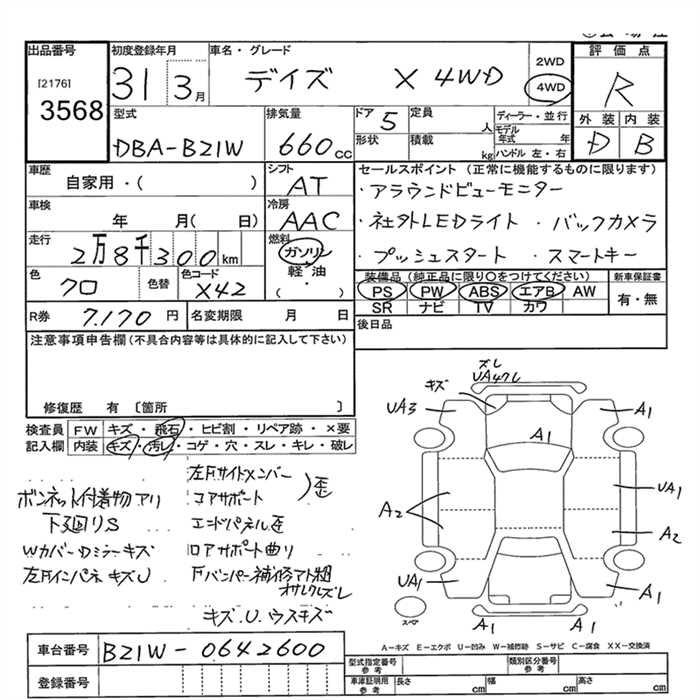 出品番号 初度登録年月 車名・グレード 評価点
[2176]
3568
31 3月 デイズ X 4WD 2WD 4WD R
型式 排気量 ドア 5 定員 人 ディーラー・並行 外装 内装
DBA-BZ1W 660cc 形状 積載 kg モデル年式 年 D B
ハンドル 左・右
車歴 シフト セールスポイント (正常に機能するものに限ります)
自家用・( ) AT ・アラウンドビューモニター
車検 冷房 ・社外LEDライト ・バックカメラ
年 月( 日) AAC
走行 燃料 ・プッシュスタート ・スマートキー
2万8千300km ガソリン
軽油
( )
色 クロ 色替 色コード X42 装備品 (純正品に限り○をつけてください) 新車保証書
PS PW ABS エアB AW 有・無
SR ナビ TV カワ
R券 7.170円 名変期限 月 日 後日品
注意事項申告欄(不具合内容等は具体的に記入して下さい)
修復歴 有 〔箇所 〕
検査員 FW キズ・飛石・ヒビ割・リペア跡・×要
記入欄 内装 キズ・汚レ・コゲ・穴・スレ・キレ・破レ
ズレ
キズ UA4クレ
UA3 A1
A1
A2 UA1
A2
UA1 A1
スペア A1 A1
左Fサイドメンバー
ボンネット付着物アリ コアサポート 歪
下廻りS エンドパネル歪
WカバーDミラーキズ ロアサポート曲り
左Fインパネ キズU Fバンパー補修アト
ズレ
キズ U. ウスキズ
車台番号 BZ1W-0642600
A-キズ E-エクボ U-凹み W-補修跡 S-サビ C-腐食 XX-交換済
登録番号
型式指定番号 参考 類別区分番号 参考
車庫証明用 参考 長さ cm 幅 cm 高さ cm